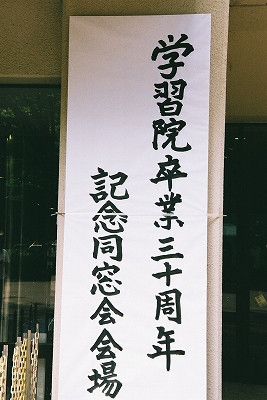 学習院卒業三十周年
記念同窓会会場